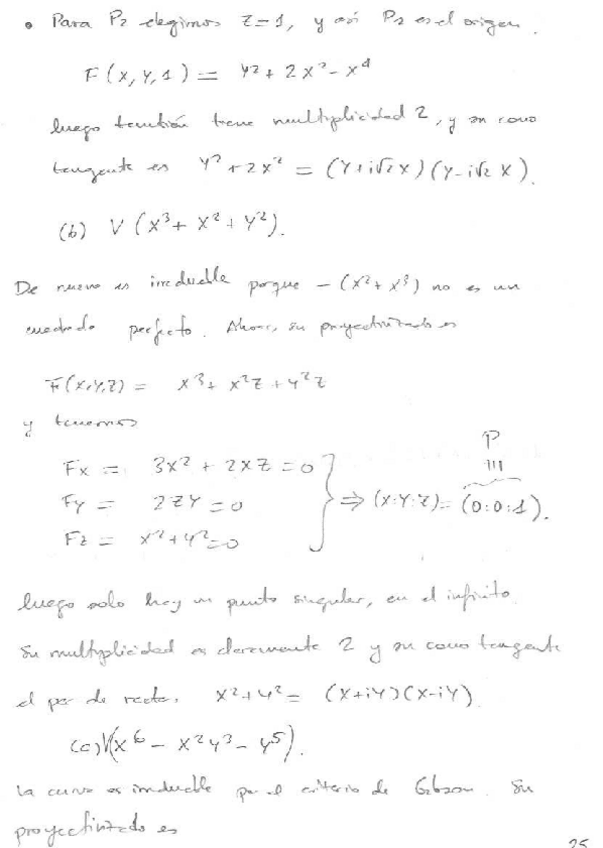 • Para P₂ elegimos Z=1, y así P₂ es el origen.
F(X,Y,1) = Y² + 2X² - X⁴
luego también tiene multiplicidad 2, y su cono
tangente es Y² + 2X² = (Y+i√2X)(Y-i√2X).
(b) V(X³+X²+Y²).
De nuevo es irreducible porque -(X²+X³) no es un
cuadrado perfecto. Ahora, su proyectivizado es
F(X,Y,Z) = X³+X²Z+Y²Z
y tenemos
P
Fx = 3X² + 2XZ = 0
Fy = 2ZY = 0
Fz = X²+Y² = 0
⇒ (X:Y:Z) = (0:0:1).
luego solo hay un punto singular, en el infinito.
Su multiplicidad es claramente 2 y su cono tangente
el par de rectas X²+Y² = (X+iY)(X-iY)
(c) V(X⁶ - X²Y³ - Y⁵).
La curva es irreducible por el criterio de Gibson. Su
proyectivizado es
25